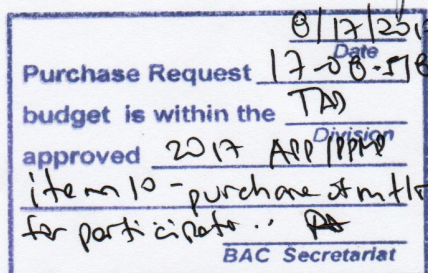 8/17/201
Date
Purchase Request 17-08-518
budget is within the TAD
Division
approved 2017 APP/PPMP
item 10 - purchase of mtls
for participants..
BAC Secretariat